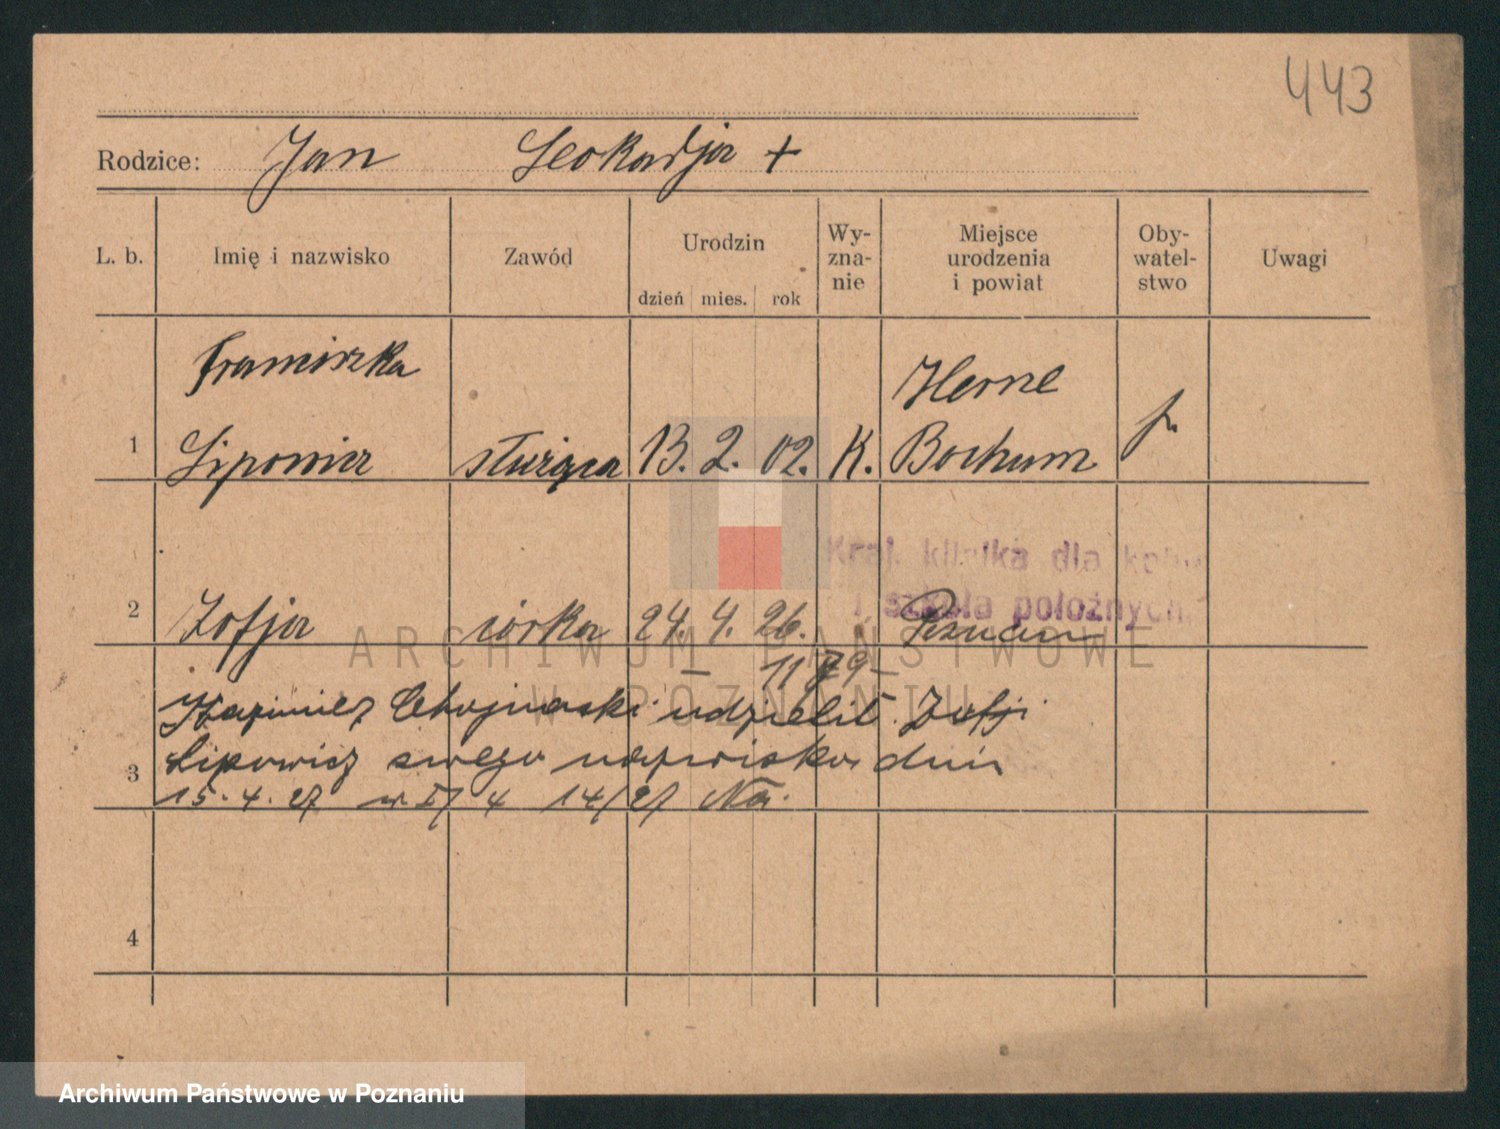 443
Rodzice: Jan Leokadja +
L. b. Imię i nazwisko Zawód Urodzin Wy- Miejsce Oby- Uwagi
zna- urodzenia watel-
dzień mies. rok nie i powiat stwo
Franciszka Herne
1 Lipowicz służąca 13. 2. 02. K. Bochum p.
Kraj. klinika dla kobiet
i szkoła położnych
2 Zofja córka 24. 4. 26. Poznań
ARCHIWUM PAŃSTWOWE
W POZNANIU
Kazimierz Chojnacki udzielił Zofji
3 Lipowicz swego nazwiska dnia
15. 4. 27 14/27
4
Archiwum Państwowe w Poznaniu